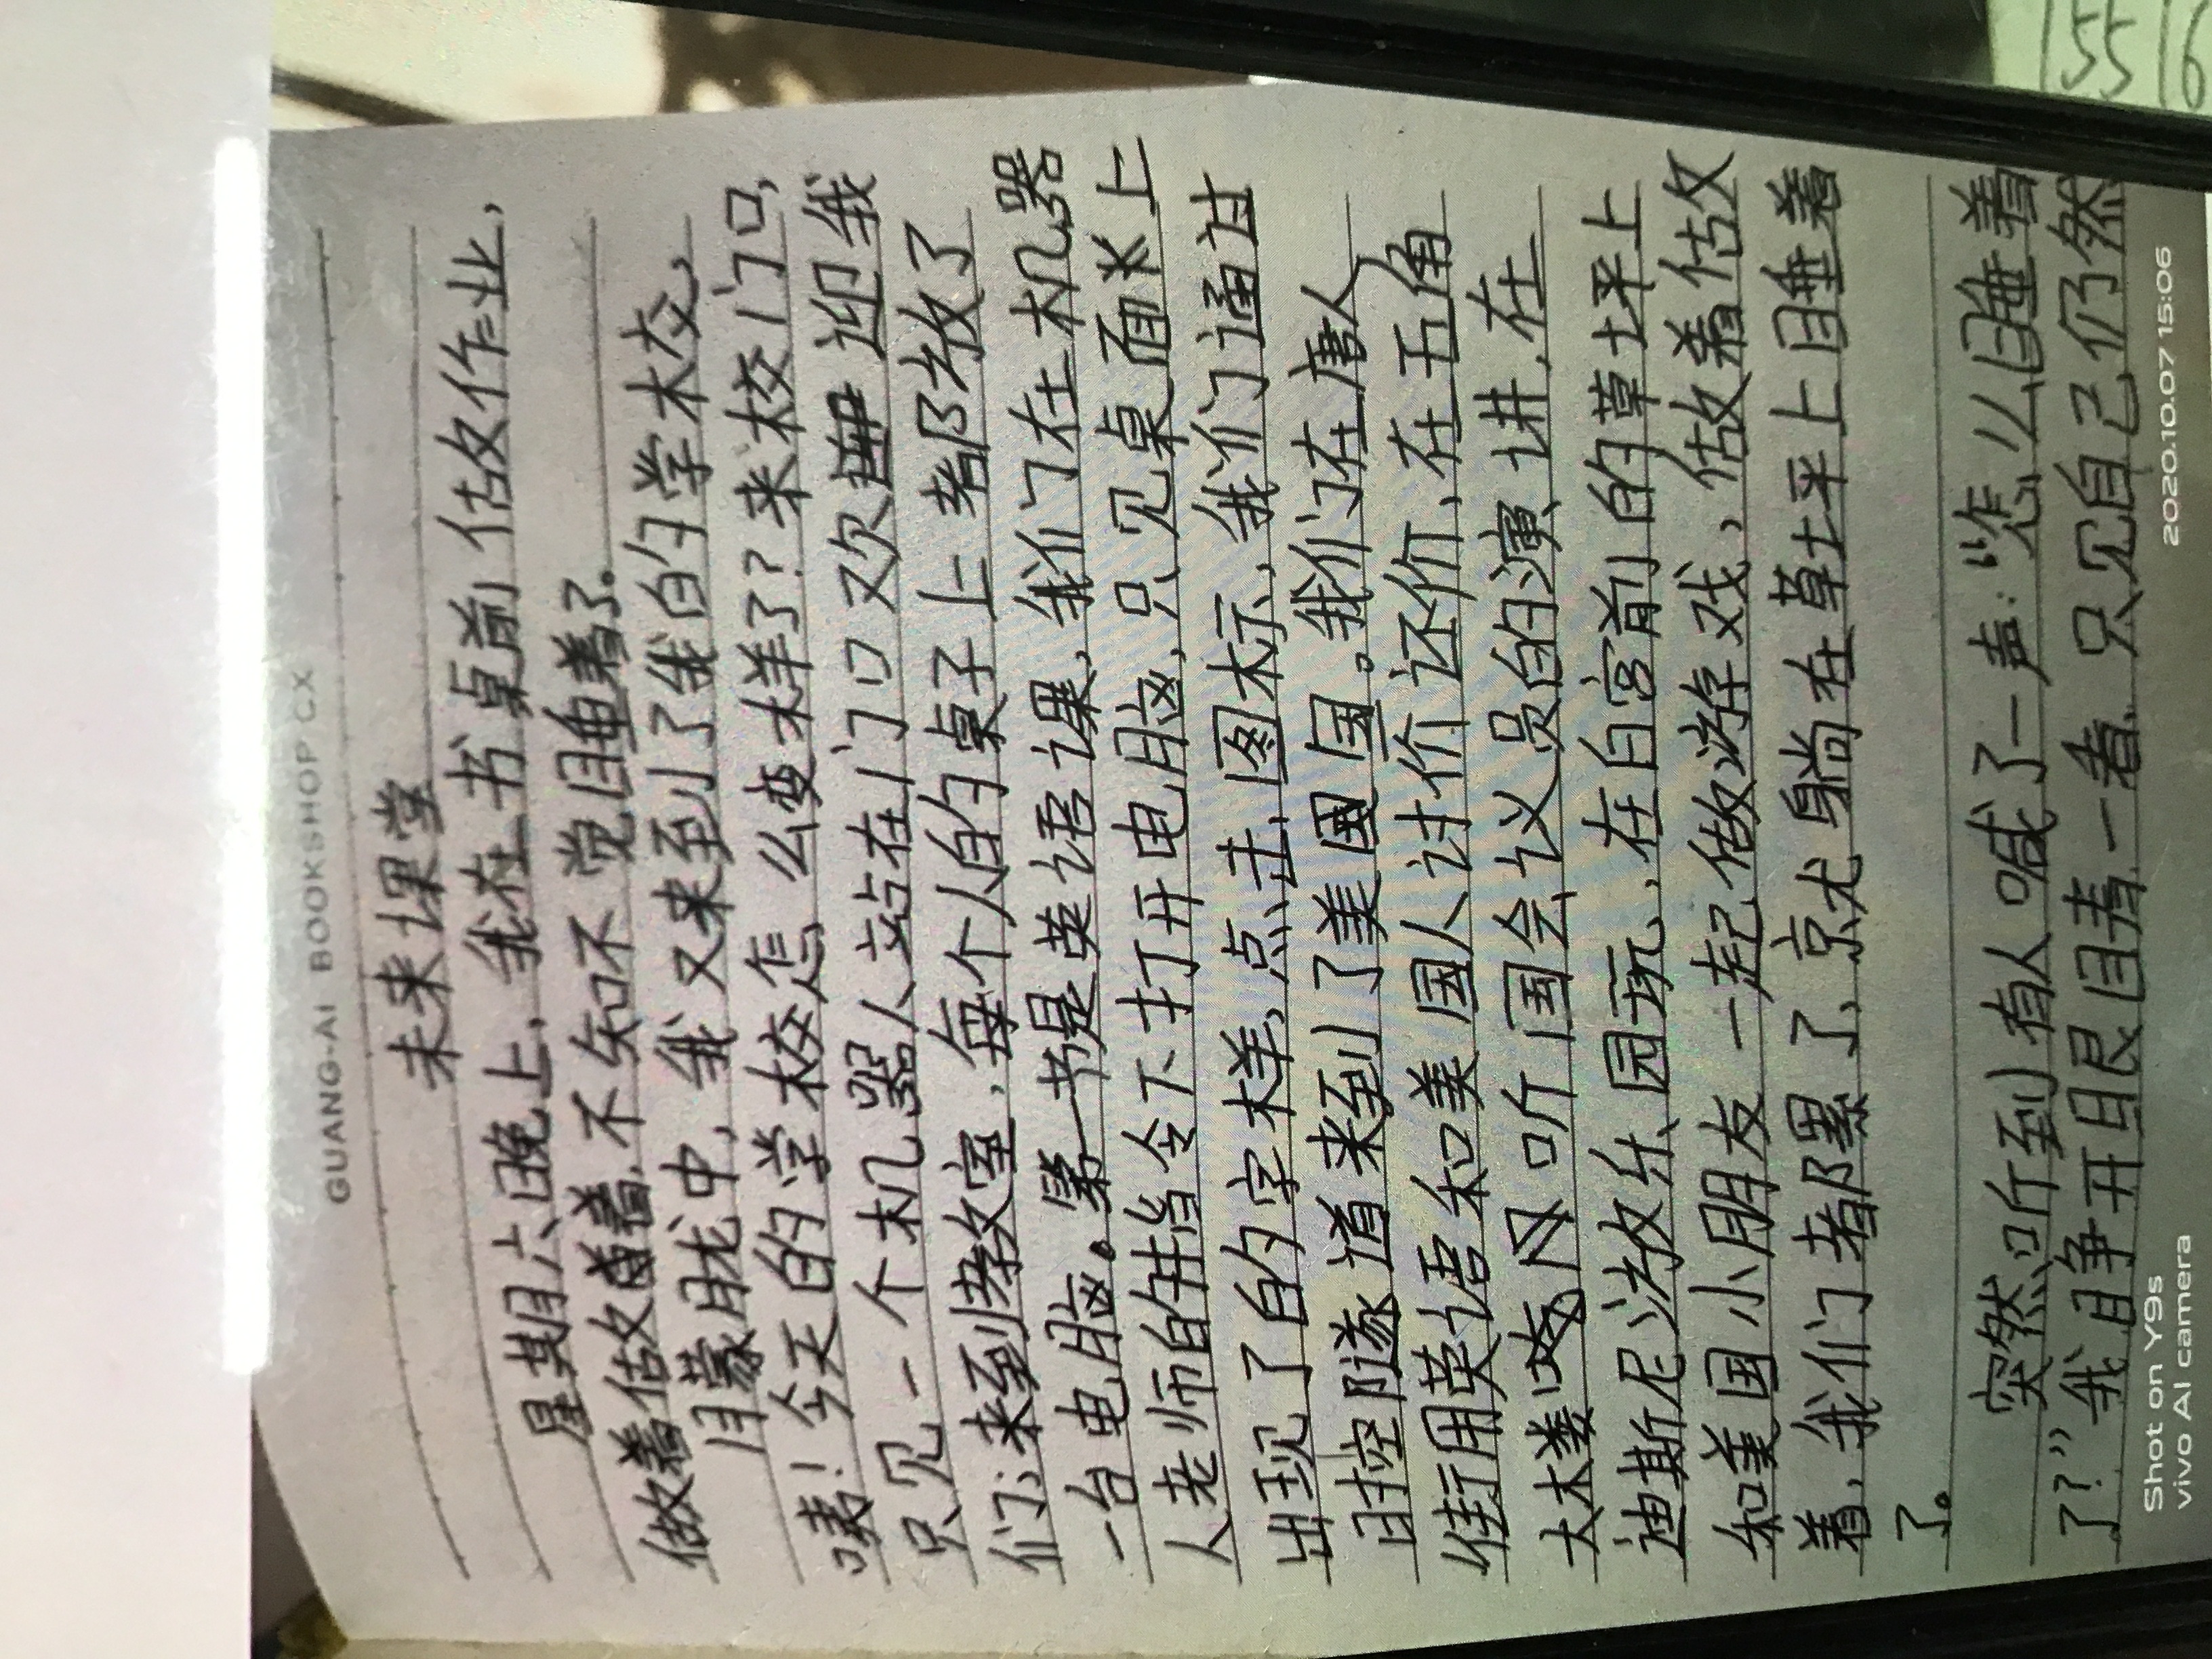 GUANG-AI BOOKSHOP CX
未来课堂
星期六晚上,我在书桌前做作业,
做着做着,不知不觉睡着了。
朦胧中,我又来到了我的学校,
咦!今天的学校怎么变样了?来校门口,
只见一个机器人站在门口欢迎我
们;来到教室,每个人的桌子上都放了
一台电脑。第一书是英语课,我们在机器
人老师的指令下打开电脑,只见桌面上
出现了的字样,点击图标,我们通过
时控隧道来到了美国。我们在唐人
街用英语和美国人讨价还价,在五角
大楼听国会议员的演讲,在
迪斯尼游乐园玩,在白宫前的草坪上
和美国小朋友一起做游戏,做着做
着,我们都累了,就躺在草坪上睡着
了。
突然听到有人喊了一声:“怎么睡着
了?”我睁开眼睛一看,只见自己仍然
Shot on Y9s
vivo AI camera
2020.10.07 15:06
155 16